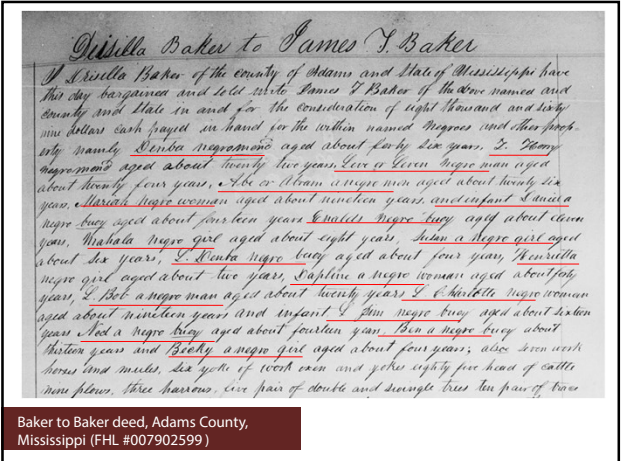 Drisilla Baker to James T. Baker
I Drisella Baker of the county of Adams and State of Mississippi have
this day bargained and sold unto James T Baker of the above named and
county and State in and for the consideration of eight thousand and sixty
nine dollars cash payed in hand for the within named Negroes and other prop-
erty namely Denba negromond aged about forty six years,
negromond aged about twenty two years, Love or Leven negro man aged
about twenty four years, Abe or Abram a negro man aged about twenty six
years, Mariah negro woman aged about nineteen years, and infant
negro buoy aged about fourteen years negro buoy aged about eleven
years, Mahala negro girl aged about eight years, Susan a negro girl aged
about six years, L. Denba negro buoy aged about four years, Henrietta
negro girl aged about two years, Daphne a negro woman aged about forty
years, L. Bob a negro man aged about twenty years L Charlotte negro woman
aged about nineteen years and infant L Jim negro buoy aged about sixteen
years Ned a negro buoy aged about fourteen years, Ben a negro buoy about
thirteen years and Becky a negro girl aged about four years; also seven work
horses and mules, six yoke of work oxen and yokes eighty five head of cattle
nine plows, three harrows, five pair of double and swingle trees ten pair of
Baker to Baker deed, Adams County,
Mississippi (FHL #007902599 )